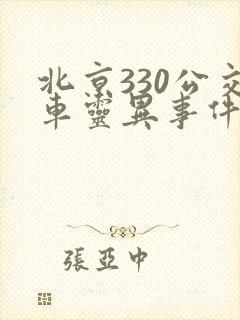 北京330公交
車靈異事件
張亞中